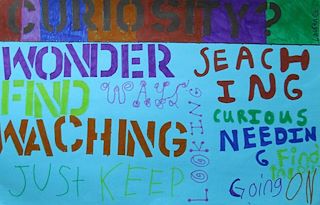 CURIOSITY?
WONDER
FIND WAYS
WACHING
JUST KEEP
LOOKING
SEACH
ING
CURIOUS
NEEDIN
G
Find
Going ON